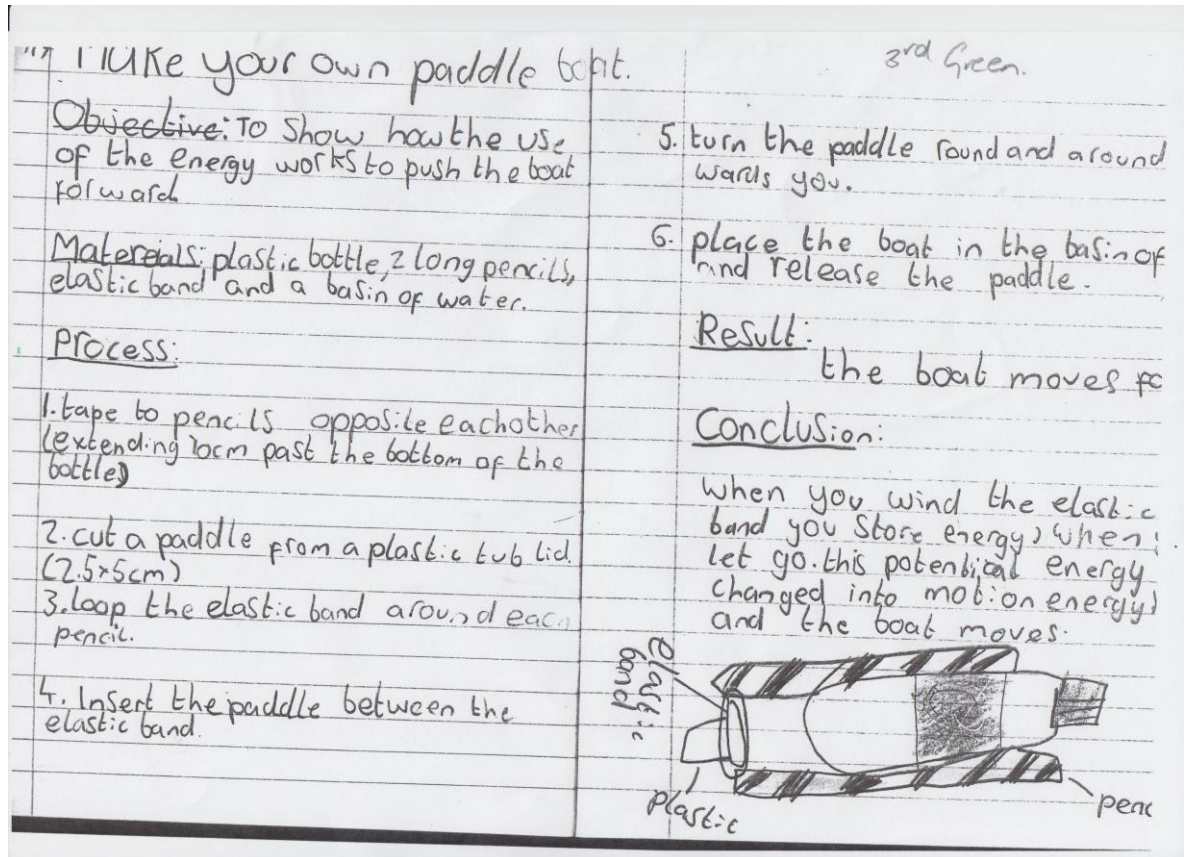 Make your own paddle boat.
3rd Green.
Objective: To Show how the use
of the energy works to push the boat
forward
Matereials: plastic bottle, 2 long pencils,
elastic band and a basin of water.
Process:
1. tape to pencils opposite eachother
(extending 10cm past the bottom of the
bottle)
2. cut a paddle from a plastic tub lid.
(2.5×5cm)
3. loop the elastic band around each
pencil.
4. Insert the paddle between the
elastic band.
5. turn the paddle round and around
wards you.
6. place the boat in the basin of
and release the paddle.
Result:
the boat moves fo
Conclusion:
When you wind the elastic
band you Store energy, when
let go. this potential energy
changed into motion energy,
and the boat moves.
elastic
band
plastic
penc